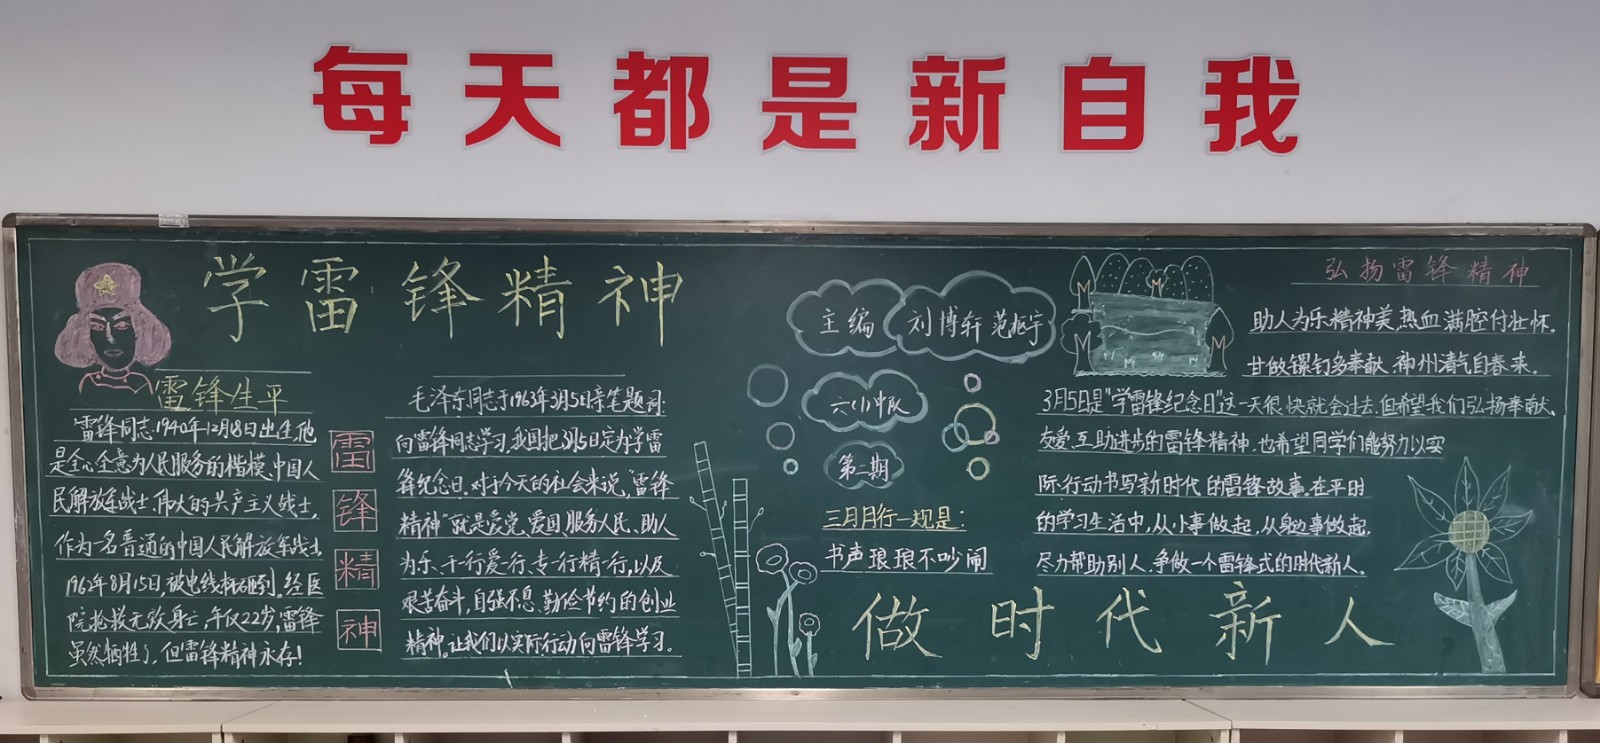 每天都是新自我
学雷锋精神
雷锋生平
雷锋同志,1940年12月18日出生,他
是全心全意为人民服务的楷模,中国人
民解放军战士,伟大的共产主义战士,
作为一名普通的中国人民解放军战士
1962年8月15日,被电线杆砸到,经医
院抢救无效身亡,年仅22岁,雷锋
虽然牺牲了,但雷锋精神永存!
雷
锋
精
神
毛泽东同志于1963年3月5日亲笔题词:
向雷锋同志学习,我国把3月5日定为学雷
锋纪念日。对于今天的社会来说,"雷锋
精神"就是爱党、爱国、服务人民、助人
为乐、干一行爱一行、专一行精一行,以及
艰苦奋斗,自强不息、勤俭节约的创业
精神。让我们以实际行动向雷锋学习。
主编
刘博轩 范兆宇
六(1)中队
第二期
三月月行一规是:
书声琅琅不吵闹
弘扬雷锋精神
助人为乐精神美,热血满腔付壮怀。
甘做镙钉多奉献,神州清气自春来。
3月5日是"学雷锋纪念日"这一天很快就会过去,但希望我们弘扬奉献、
友爱、互助进步的雷锋精神,也希望同学们能努力以实
际行动书写新时代的雷锋故事。在平时
的学习生活中,从小事做起,从身边事做起,
尽力帮助别人,争做一个雷锋式的时代新人。
做时代新人